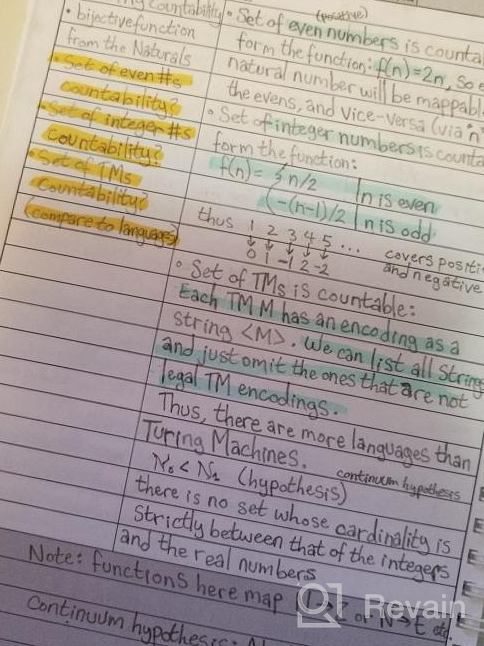 countability
• bijective function
from the Naturals
• Set of even #s
countability?
• Set of integer #s
countability?
• Set of TMs
countability?
(compare to languages)
(positive)
• Set of even numbers is
form the function: f(n) = 2n, so
natural number will be
the evens, and vice-versa (via
• Set of integer numbers is
form the function:
f(n) = { n/2 | n is even
{ -(n-1)/2 | n is odd
thus 1 2 3 4 5 ... covers
↓ ↓ ↓ ↓ ↓ and negative
0 1 -1 2 -2
• Set of TMs is countable:
Each TM M has an encoding as a
string <M>. We can list all
and just omit the ones that are not
legal TM encodings.
Thus, there are more languages than
Turing Machines.
ℵ₀ < ℵ₁ (hypothesis) continuum hypothesis
there is no set whose cardinality is
strictly between that of the integers
and the real numbers
Note: functions here map
Continuum hypothesis:
Revain